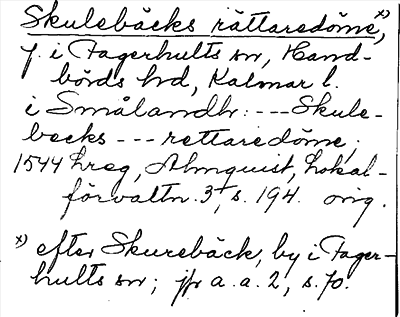 Skulebäcks rättaredöme,x)
f. i Fagerhults sn, Hand-
börds hd, Kalmar l.
i Smålandh: --- Skule-
becks --- rettaredöme,
1544 hreg, Almquist, Lokal-
förvaltn. 3, s. 194. orig.
x) efter Skurebäck, by i Fager-
hults sn; jfr a. a. 2, s. 70.